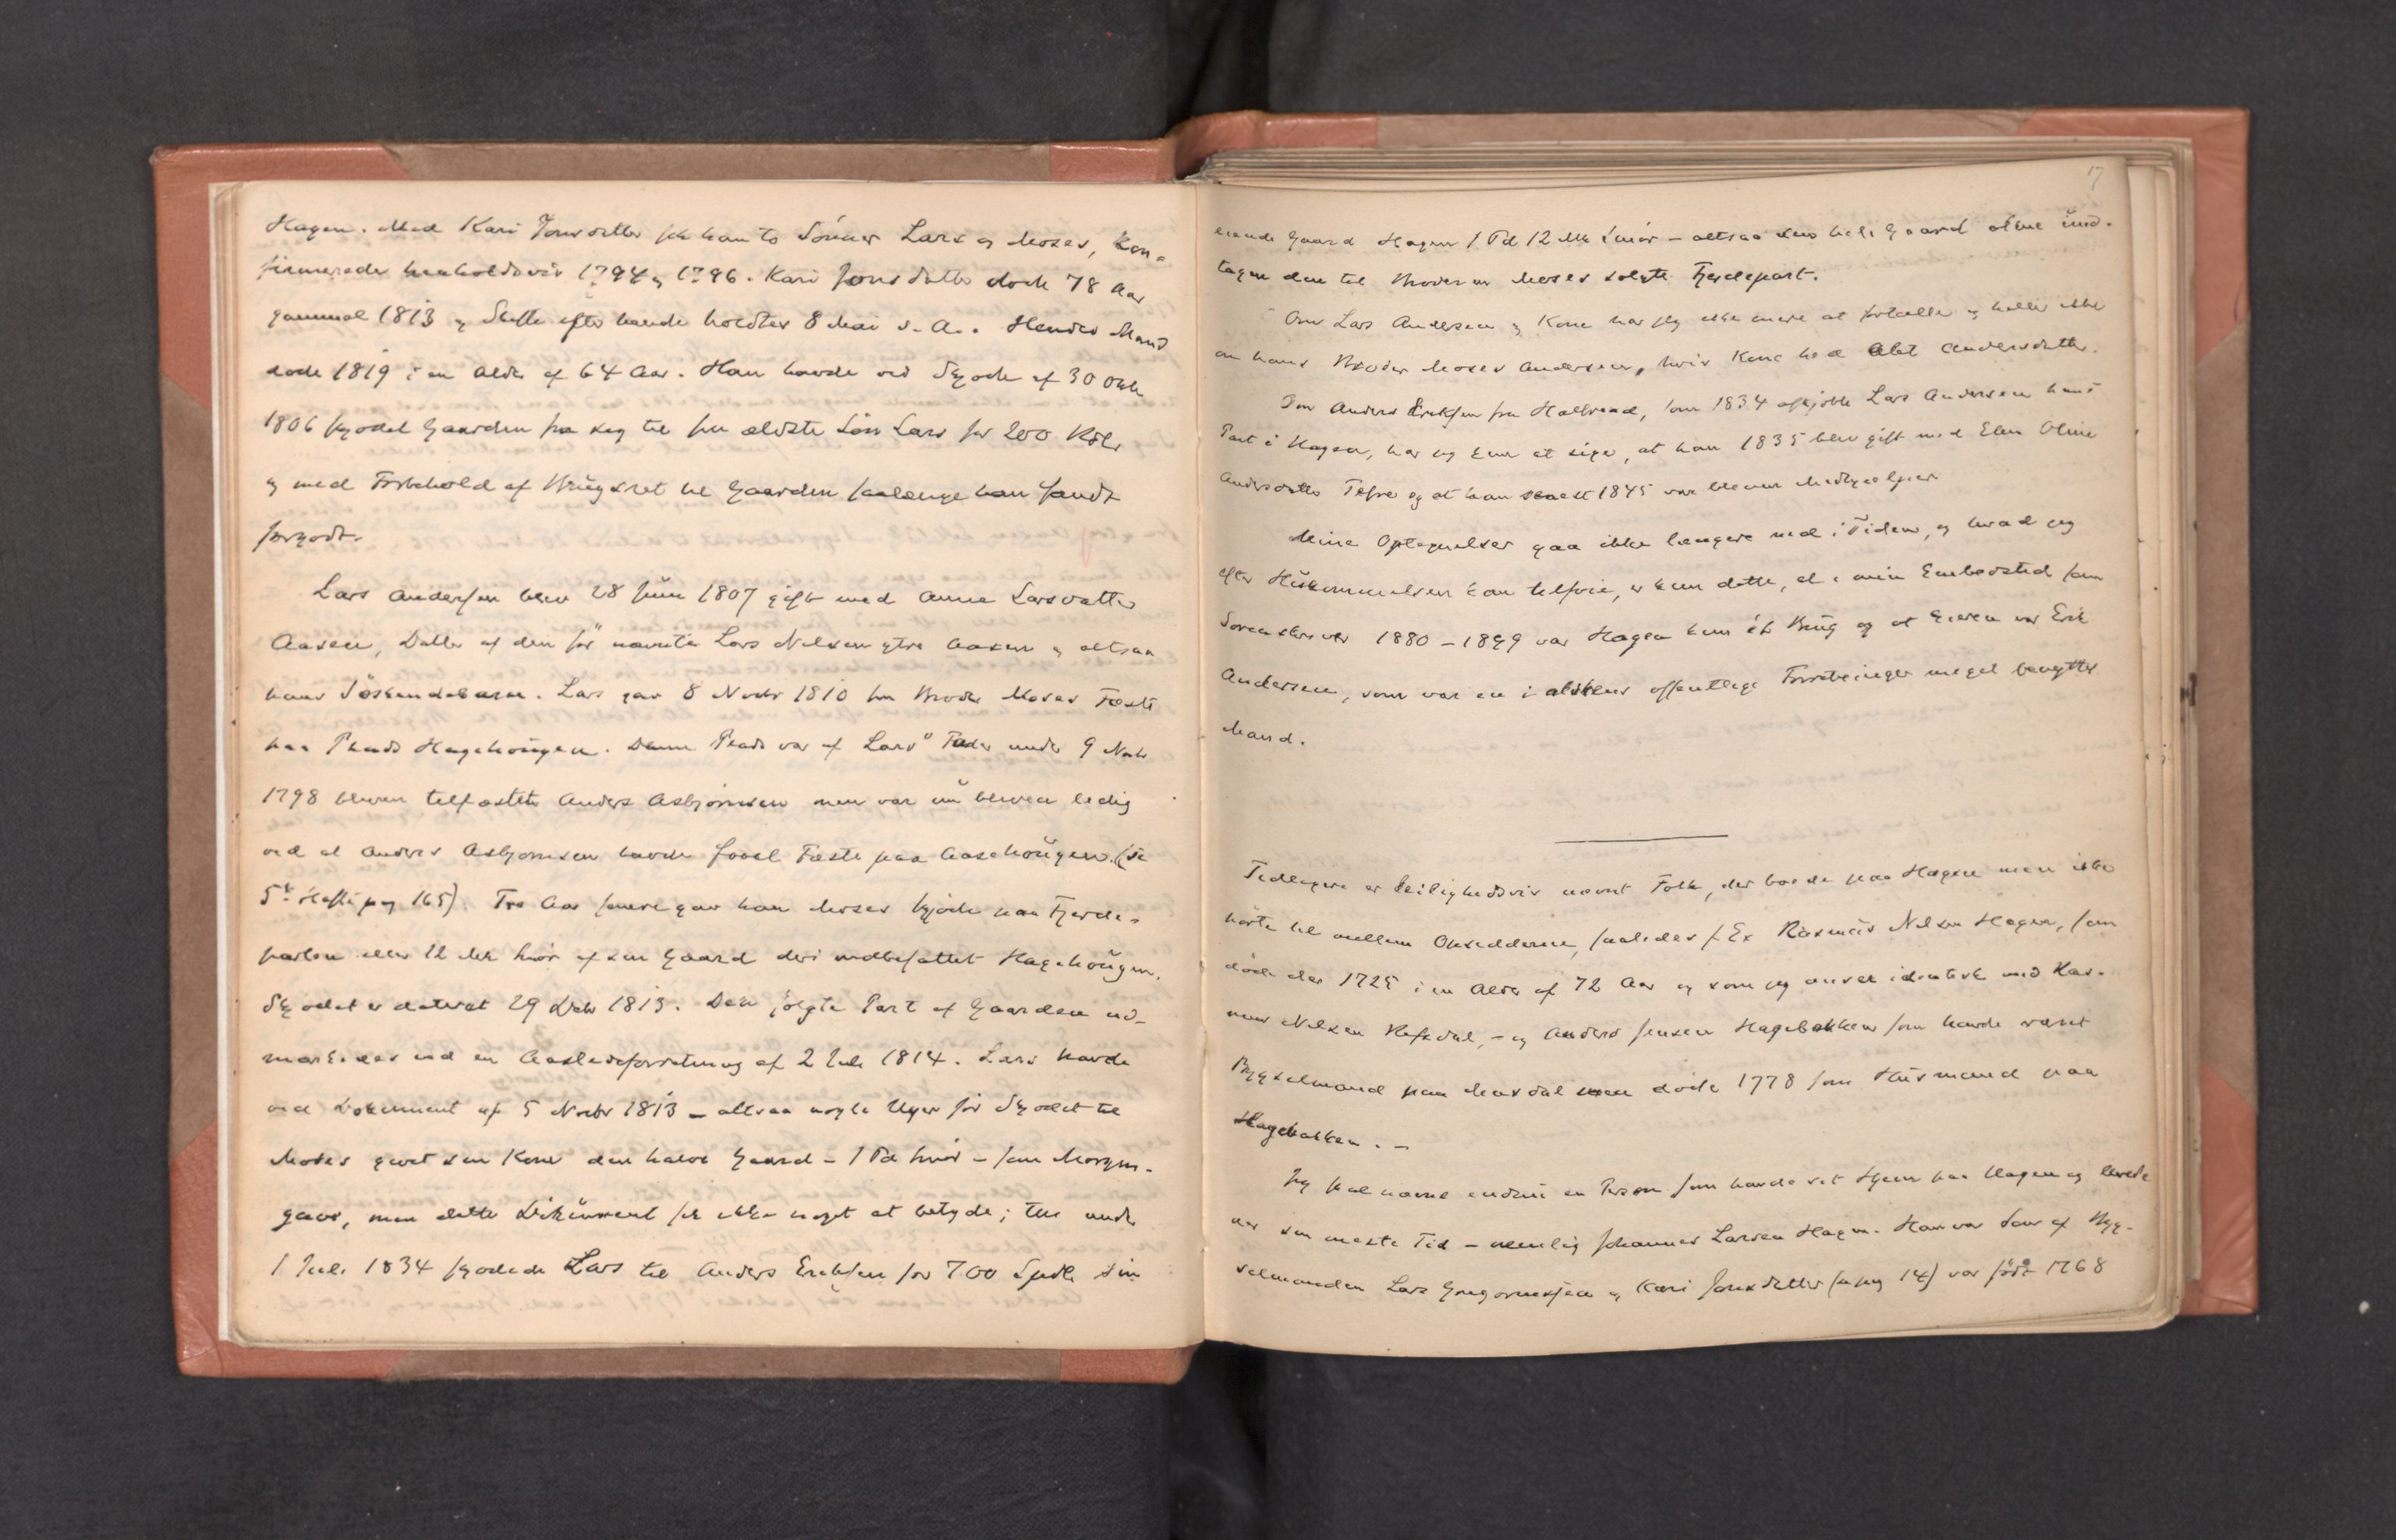 Hagen. Med Kari Jonsdatter fik han to Sönner Lars og Moses, kon-
firmerede henholdsvis 1794 og 1796. Kari Jonsdatter döde 78 Aar
gammel 1813 og Skifte efter hende holdtes 8 Mai s. A. Hendes Mand
döde 1819 i en Alder af 64 Aar. Han havde ved Skjöde af 30 Okt
1806 skjödet Gaarden fra seg til sin ældste Sön Lars for 200 Rdlr
og med Forbehold af Brugsret til Gaarden saalænge han fandt
forgodt.
Lars Andersen blev 28 Juni 1807 gift med Anne Larsdatter
Aasen, Datter af den för nævnte Lars Nilsen ytre Aasen og altsaa
hans Söskendebarn. Lars gav 8 Novbr 1810 sin Broder Moses Fæste
paa Plads Hagehougen. Denne Plads var af Lars' Fader under 9 Novbr
1798 bleven tilfæstet Anders Asbjörnsen men var nu bleven ledig
ved at Anders Asbjörnsen havde faaet Fæste paa Aasehougen. (se
5te Hefte pag 165). Tre Aar senere gav han Moses Skjöde paa Fjerde-
parten eller 12 Mk Smör af sin Gaard deri indbefattet Hagehougen.
Skjödet er dateret 29 Debr 1813. Den solgte Part af Gaarden ud-
markedes ved en Aastedsforretning af 2 Juli 1814. Lars havde
ved Dokument af 5 Novbr 1813 – altsaa nogle Uger för Skjödet til
Moses givet sin Kone den halve Gaard – 1 Pd Smör – som Morgen-
gave, men dette Dokument fik ikke noget at betyde; thi under
1 Juli 1834 skjödede Lars til Anders Eriksen for 700 Spdlr sin
17
eiende Gaard Hagen 1 Pd 12 Mk Smör – altsaa den hele Gaard alene und-
tagen den til Broderen Moses solgte Fjerdepart.
Om Lars Andersen og Kone har jeg ikke mere at fortælle og heller ikke
om hans Broder Moses Andersen, hvis Kone hed Abet Andersdatter.
Om Anders Eriksen fra Halbrend, som 1834 afkjöbte Lars Andersen hans
Part i Hagen, har jeg kun at sige, at han 1835 blev gift med Elen Oline
Andersdatter Tefre og at han senest 1845 var bleven Medhjælper
Mine Optegnelser gaa ikke længere ned i Tiden, og hvad jeg
efter Hukommelsen kan tilföie, er kun dette, at i min Embedstid som
Sorenskriver 1880–1899 var Hagen kun ét Brug og at Eieren var Erik
Andersen, som var en i alskens offentlige Forretninger meget benyttet
Mand.
Tidligere er leilighedsvis nævnt Folk, der boede paa Hagen men ikke
hörte til mellem Opsidderne, saaledes f Ex Rasmus Nilsen Hagen, som
döde der 1725 i en Alder af 72 Aar og som jeg anser identisk med Ras-
mus Nilsen Refsdal, – og Anders Jensen Hagebakken som havde været
Bygselmand paa Mardal men döde 1778 som Husmand paa
Hagebakken. –
Jeg skal nævne endnu en Person som havde sit Hjem paa Hagen og levede
der sin meste Tid – nemlig Johannes Larsen Hagen. Han var Sön af Byg-
selmanden Lars Gregoriussen og Kari Jonsdatter (se pag 14) var född 1768